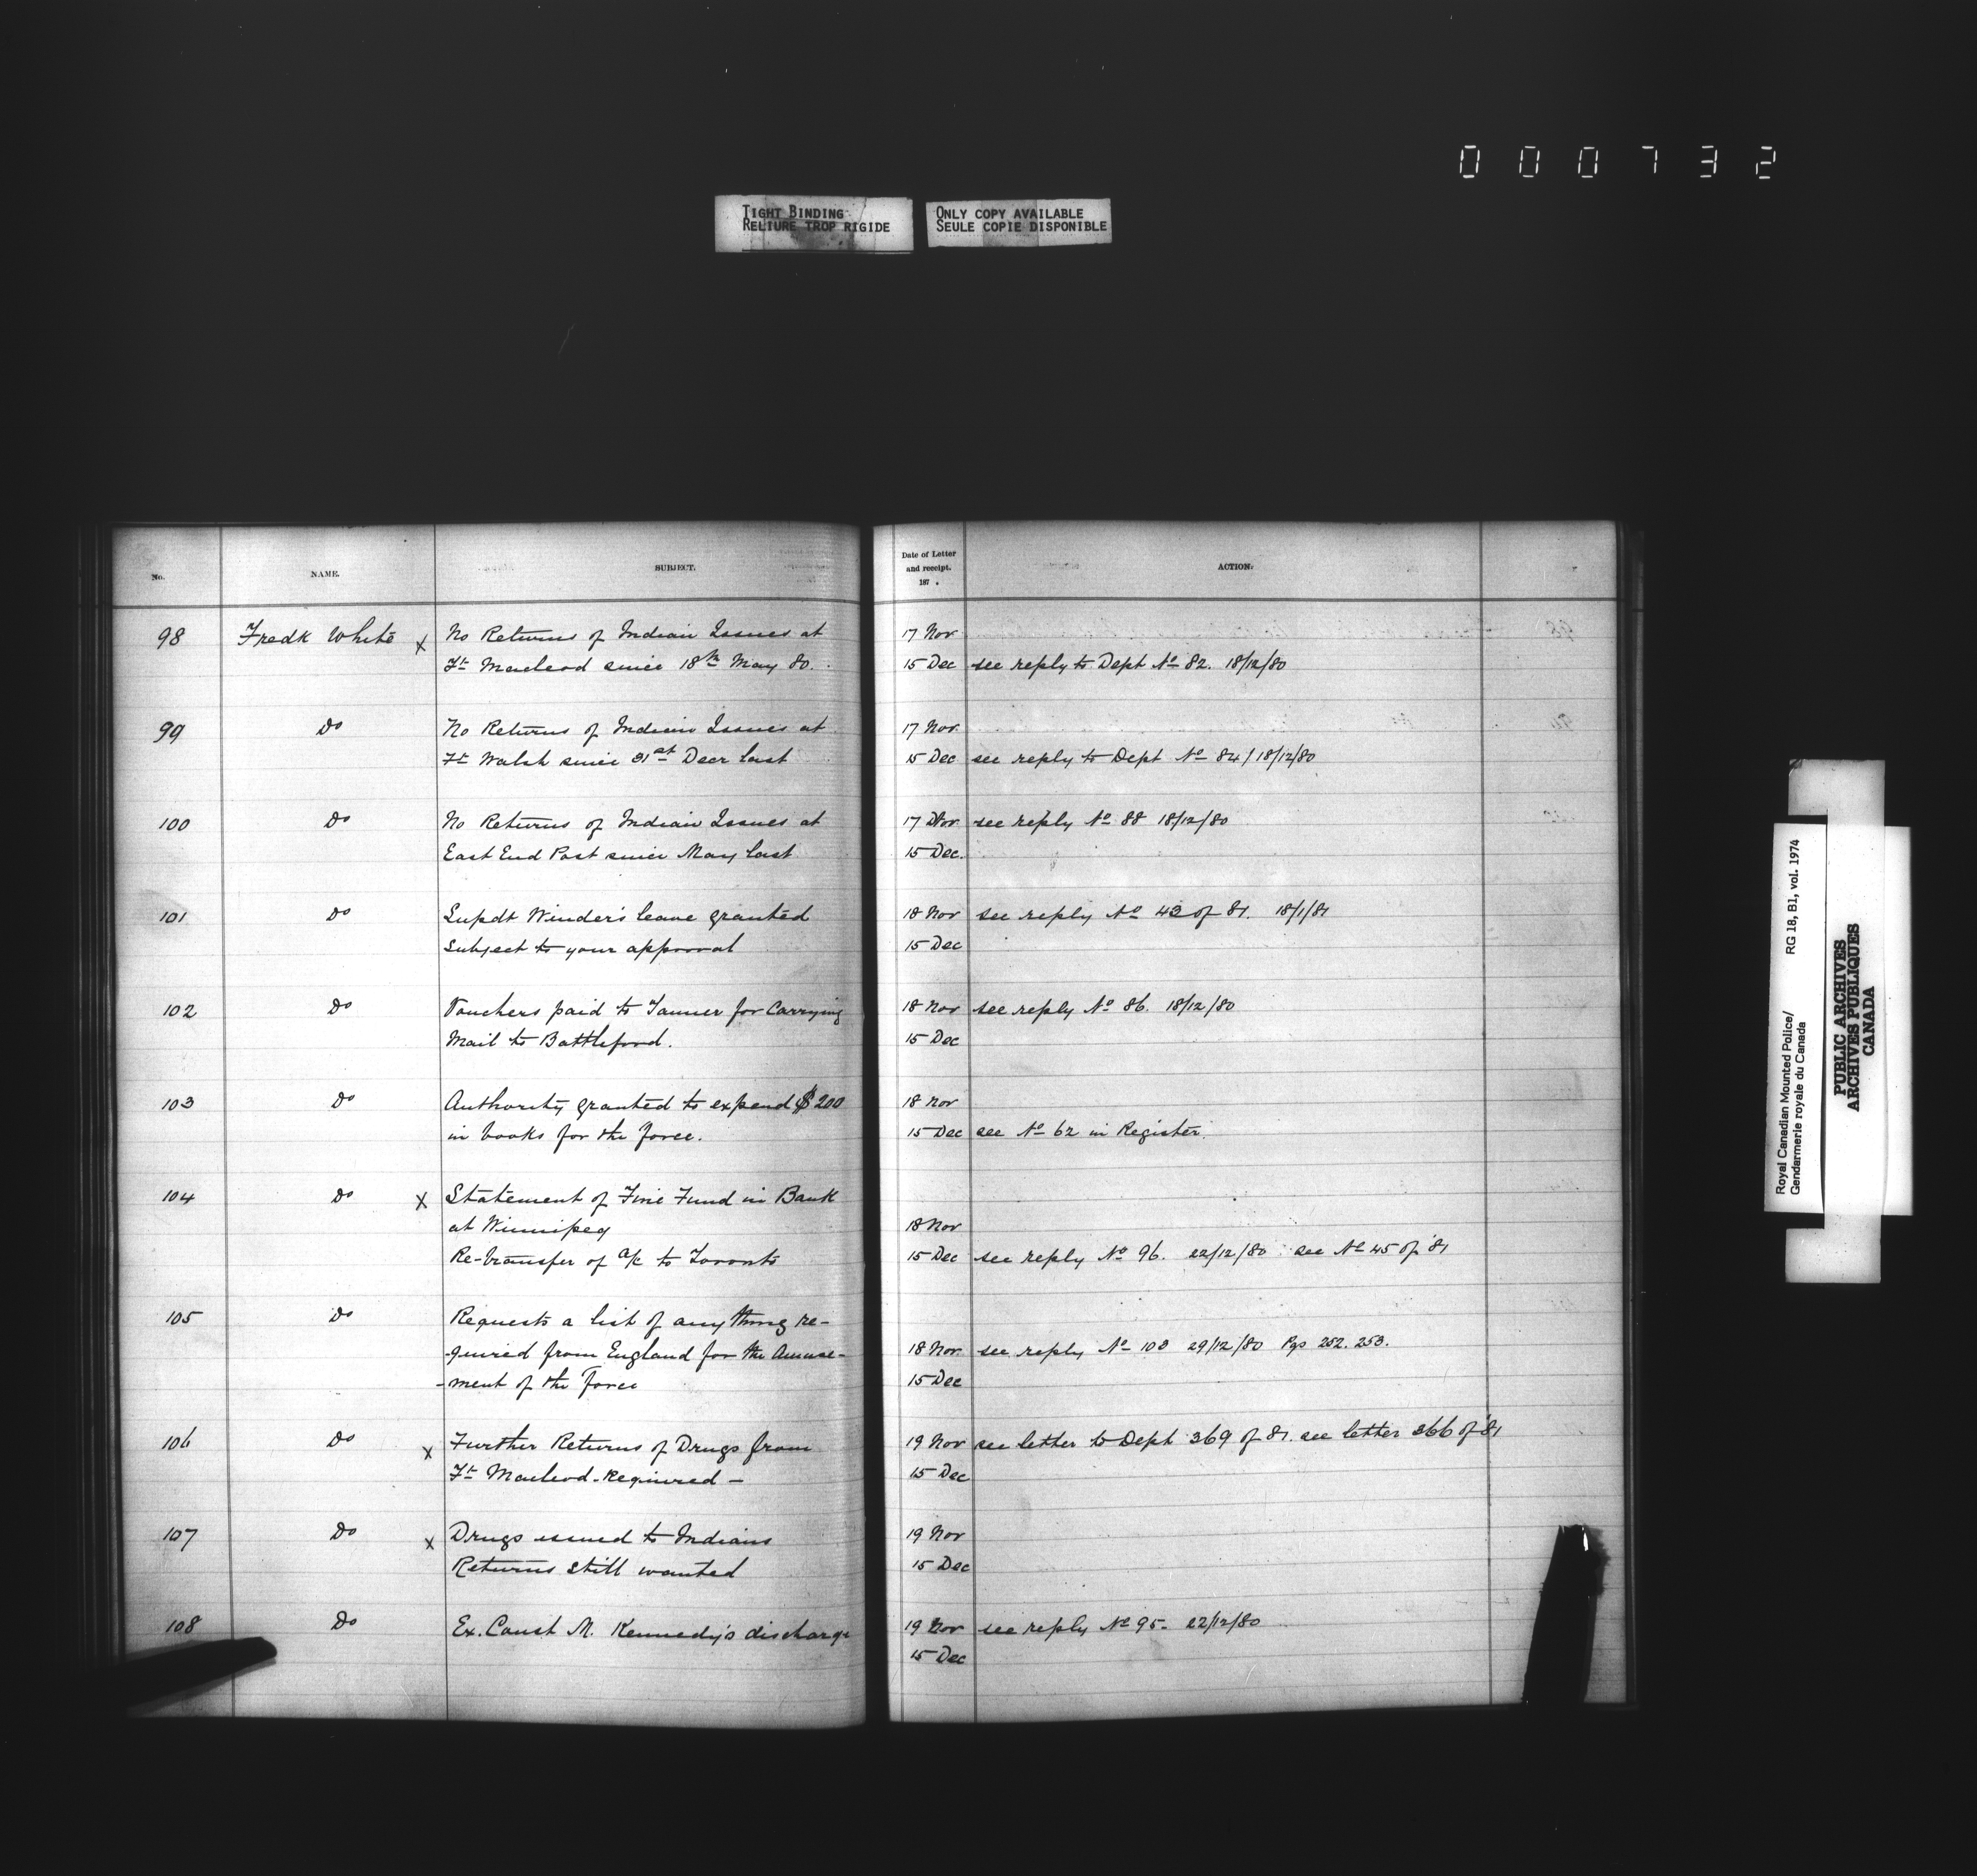 0 0 0 7 3 2
TIGHT BINDING
RELIURE TROP RIGIDE
ONLY COPY AVAILABLE
SEULE COPIE DISPONIBLE
No. NAME. SUBJECT.
98 Fredk White x No Returns of Indian Issues at
Ft Macleod since 18th May 80.
99 Do No Returns of Indian Issues at
Ft Walsh since 31st Decr last
100 Do No Returns of Indian Issues at
East End Post since May last
101 Do Supdt Winder's leave granted
subject to your approval
102 Do Vouchers paid to Tanner for Carrying
Mail to Battleford.
103 Do Authority granted to expend $200
in books for the force.
104 Do x Statement of Fine Fund in Bank
at Winnipeg
Re-transfer of a/c to Toronto
105 Do Requests a list of any thing re-
-quired from England for the Amuse-
-ment of the Force
106 Do x Further Returns of Drugs from
Ft Macleod - Required -
107 Do x Drugs issued to Indians
Returns still wanted
108 Do Ex. Const M. Kennedy's discharge
Date of Letter
and receipt.
187 .
ACTION.
17 Nov
15 Dec see reply to Dept No 82. 18/12/80
17 Nov
15 Dec see reply to Dept No 84/ 18/12/80
17 Nov see reply No 88 18/12/80
15 Dec.
18 Nov see reply No 43 of 81. 18/1/81
15 Dec
18 Nov see reply No 86. 18/12/80
15 Dec
18 Nov
15 Dec see No 62 in Register.
18 Nov
15 Dec see reply No 96. 22/12/80 see No 45 of '81
18 Nov see reply No 103 29/12/80 Pgs 252. 253.
15 Dec
19 Nov see letter to Dept 369 of 81. see letter 366 of '81
15 Dec
19 Nov
15 Dec
19 Nov see reply No 95- 22/12/80
15 Dec
Royal Canadian Mounted Police/
Gendarmerie royale du Canada
RG 18, B1, vol. 1974
PUBLIC ARCHIVES
ARCHIVES PUBLIQUES
CANADA